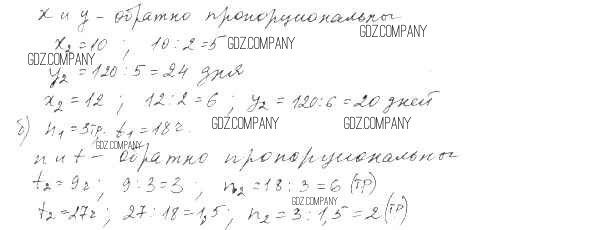 x и y – обратно пропорциональны
GDZ.COMPANY
x₂ = 10 ; 10 : 2 = 5 GDZ.COMPANY
GDZ.COMPANY
y₂ = 120 : 5 = 24 дня
x₂ = 12 ; 12 : 2 = 6 ; y₂ = 120 : 6 = 20 дней
б) n₁ = 3тр. t₁ = 18ч. GDZ.COMPANY GDZ.COMPANY
GDZ.COMPANY
n и t – обратно пропорциональны
t₂ = 9ч ; 9 : 3 = 3 ; n₂ = 18 : 3 = 6 (тр)
GDZ.COMPANY
t₂ = 27ч ; 27 : 18 = 1,5 ; n₂ = 3 : 1,5 = 2 (тр)